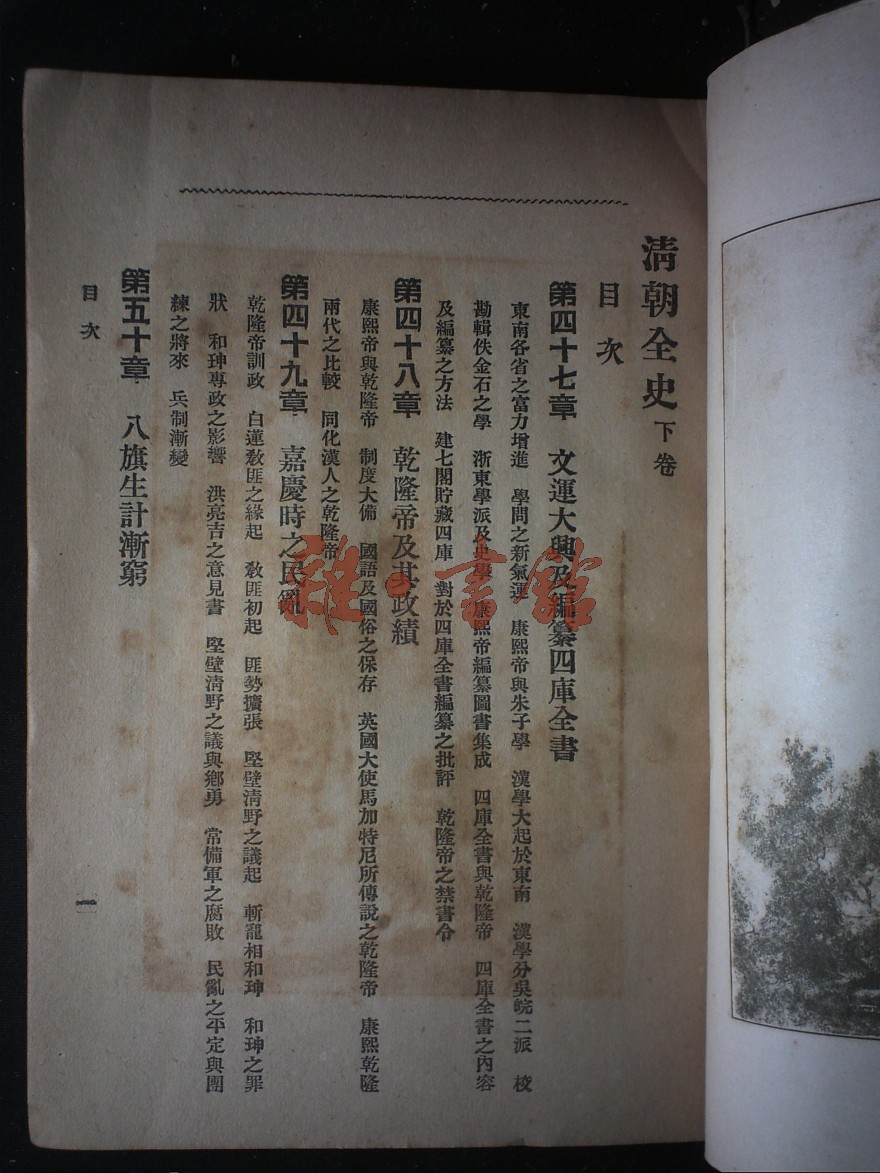 清朝全史 下卷
目次
第四十七章 文運大興及編纂四庫全書
東南各省之富力增進 學問之新氣運 康熙帝與朱子學 漢學大起於東南 漢學分吳皖二派 校
勘輯佚金石之學 浙東學派及史學 康熙帝編纂圖書集成 四庫全書與乾隆帝 四庫全書之內容
及編纂之方法 建七閣貯藏四庫 對於四庫全書編纂之批評 乾隆帝之禁書令
第四十八章 乾隆帝及其政績
康熙帝與乾隆帝 制度大備 國語及國俗之保存 英國大使馬加特尼所傳說之乾隆帝 康熙乾隆
兩代之比較 同化漢人之乾隆帝
第四十九章 嘉慶時之民亂
乾隆帝訓政 白蓮教匪之緣起 教匪初起 匪勢擴張 堅壁清野之議起 斬寵相和珅 和珅之罪
狀 和珅專政之影響 洪亮吉之意見書 堅壁清野之議與鄉勇 常備軍之腐敗 民亂之平定與團
練之將來 兵制漸變
第五十章 八旗生計漸窮
目次
一
雜·書館